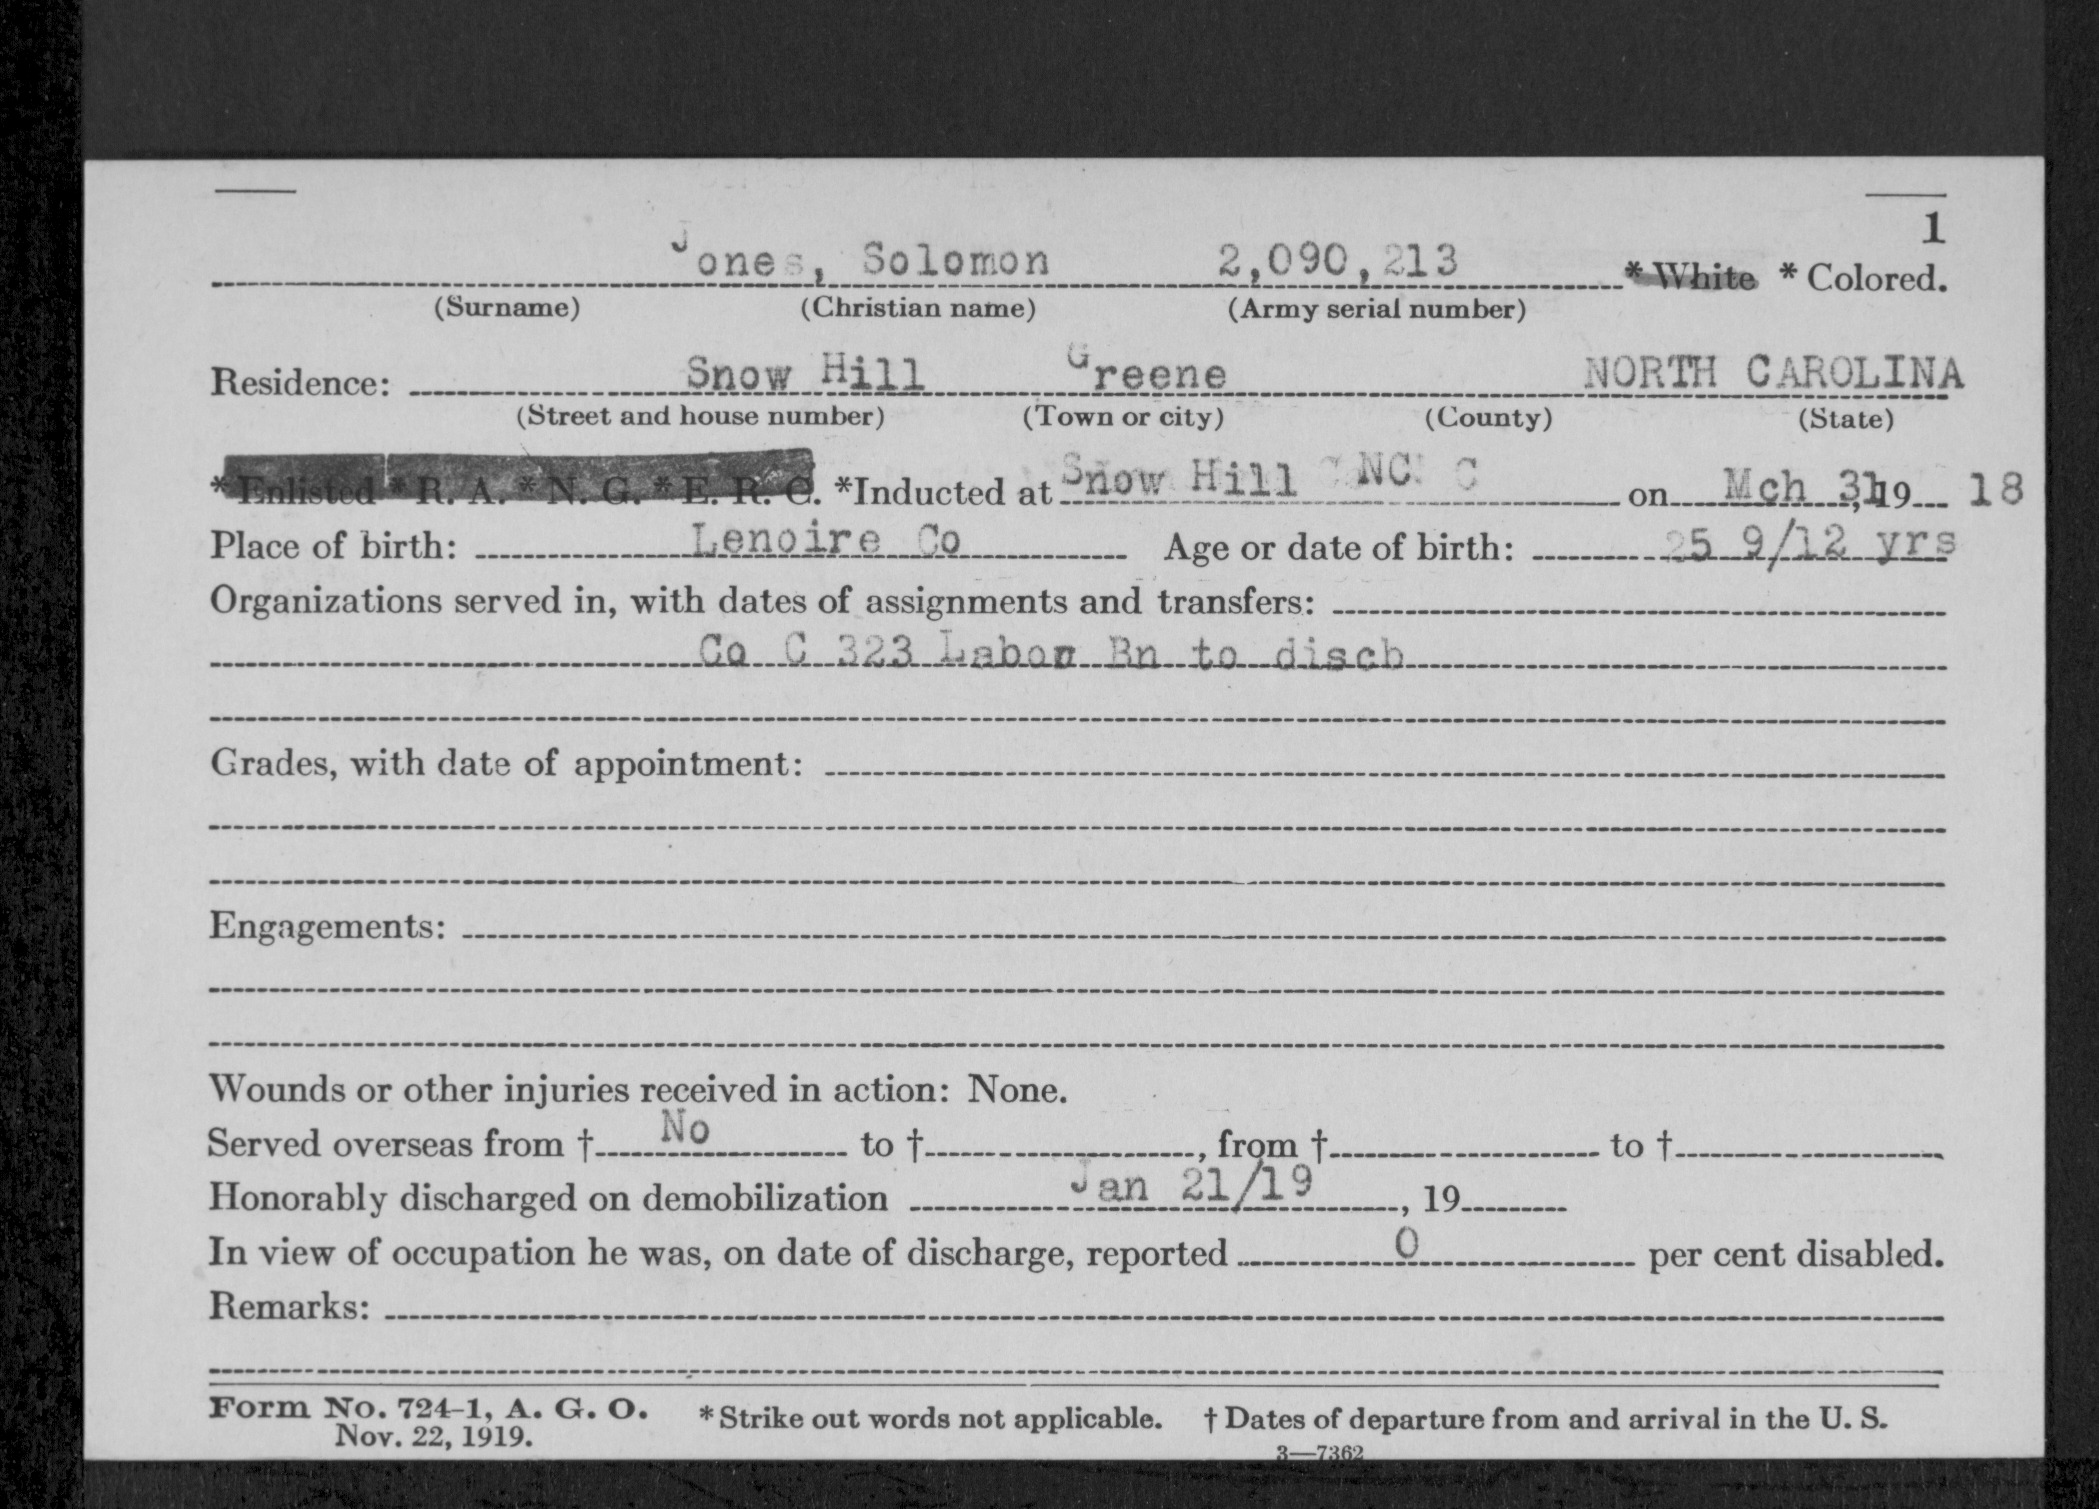 1
Jones, Solomon 2,090,213 * White * Colored.
(Surname) (Christian name) (Army serial number)
Residence: Snow Hill Greene NORTH CAROLINA
(Street and house number) (Town or city) (County) (State)
* Enlisted * R. A. * N. G. * E. R. C. *Inducted at Snow Hill NC C on Mch 31, 19 18
Place of birth: Lenoire Co Age or date of birth: 25 9/12 yrs
Organizations served in, with dates of assignments and transfers:
Co C 323 Labor Bn to disch
Grades, with date of appointment:
Engagements:
Wounds or other injuries received in action: None.
Served overseas from † No to †, from † to †
Honorably discharged on demobilization Jan 21/19, 19
In view of occupation he was, on date of discharge, reported 0 per cent disabled.
Remarks:
Form No. 724-1, A. G. O. * Strike out words not applicable. † Dates of departure from and arrival in the U. S.
Nov. 22, 1919.
3—7362